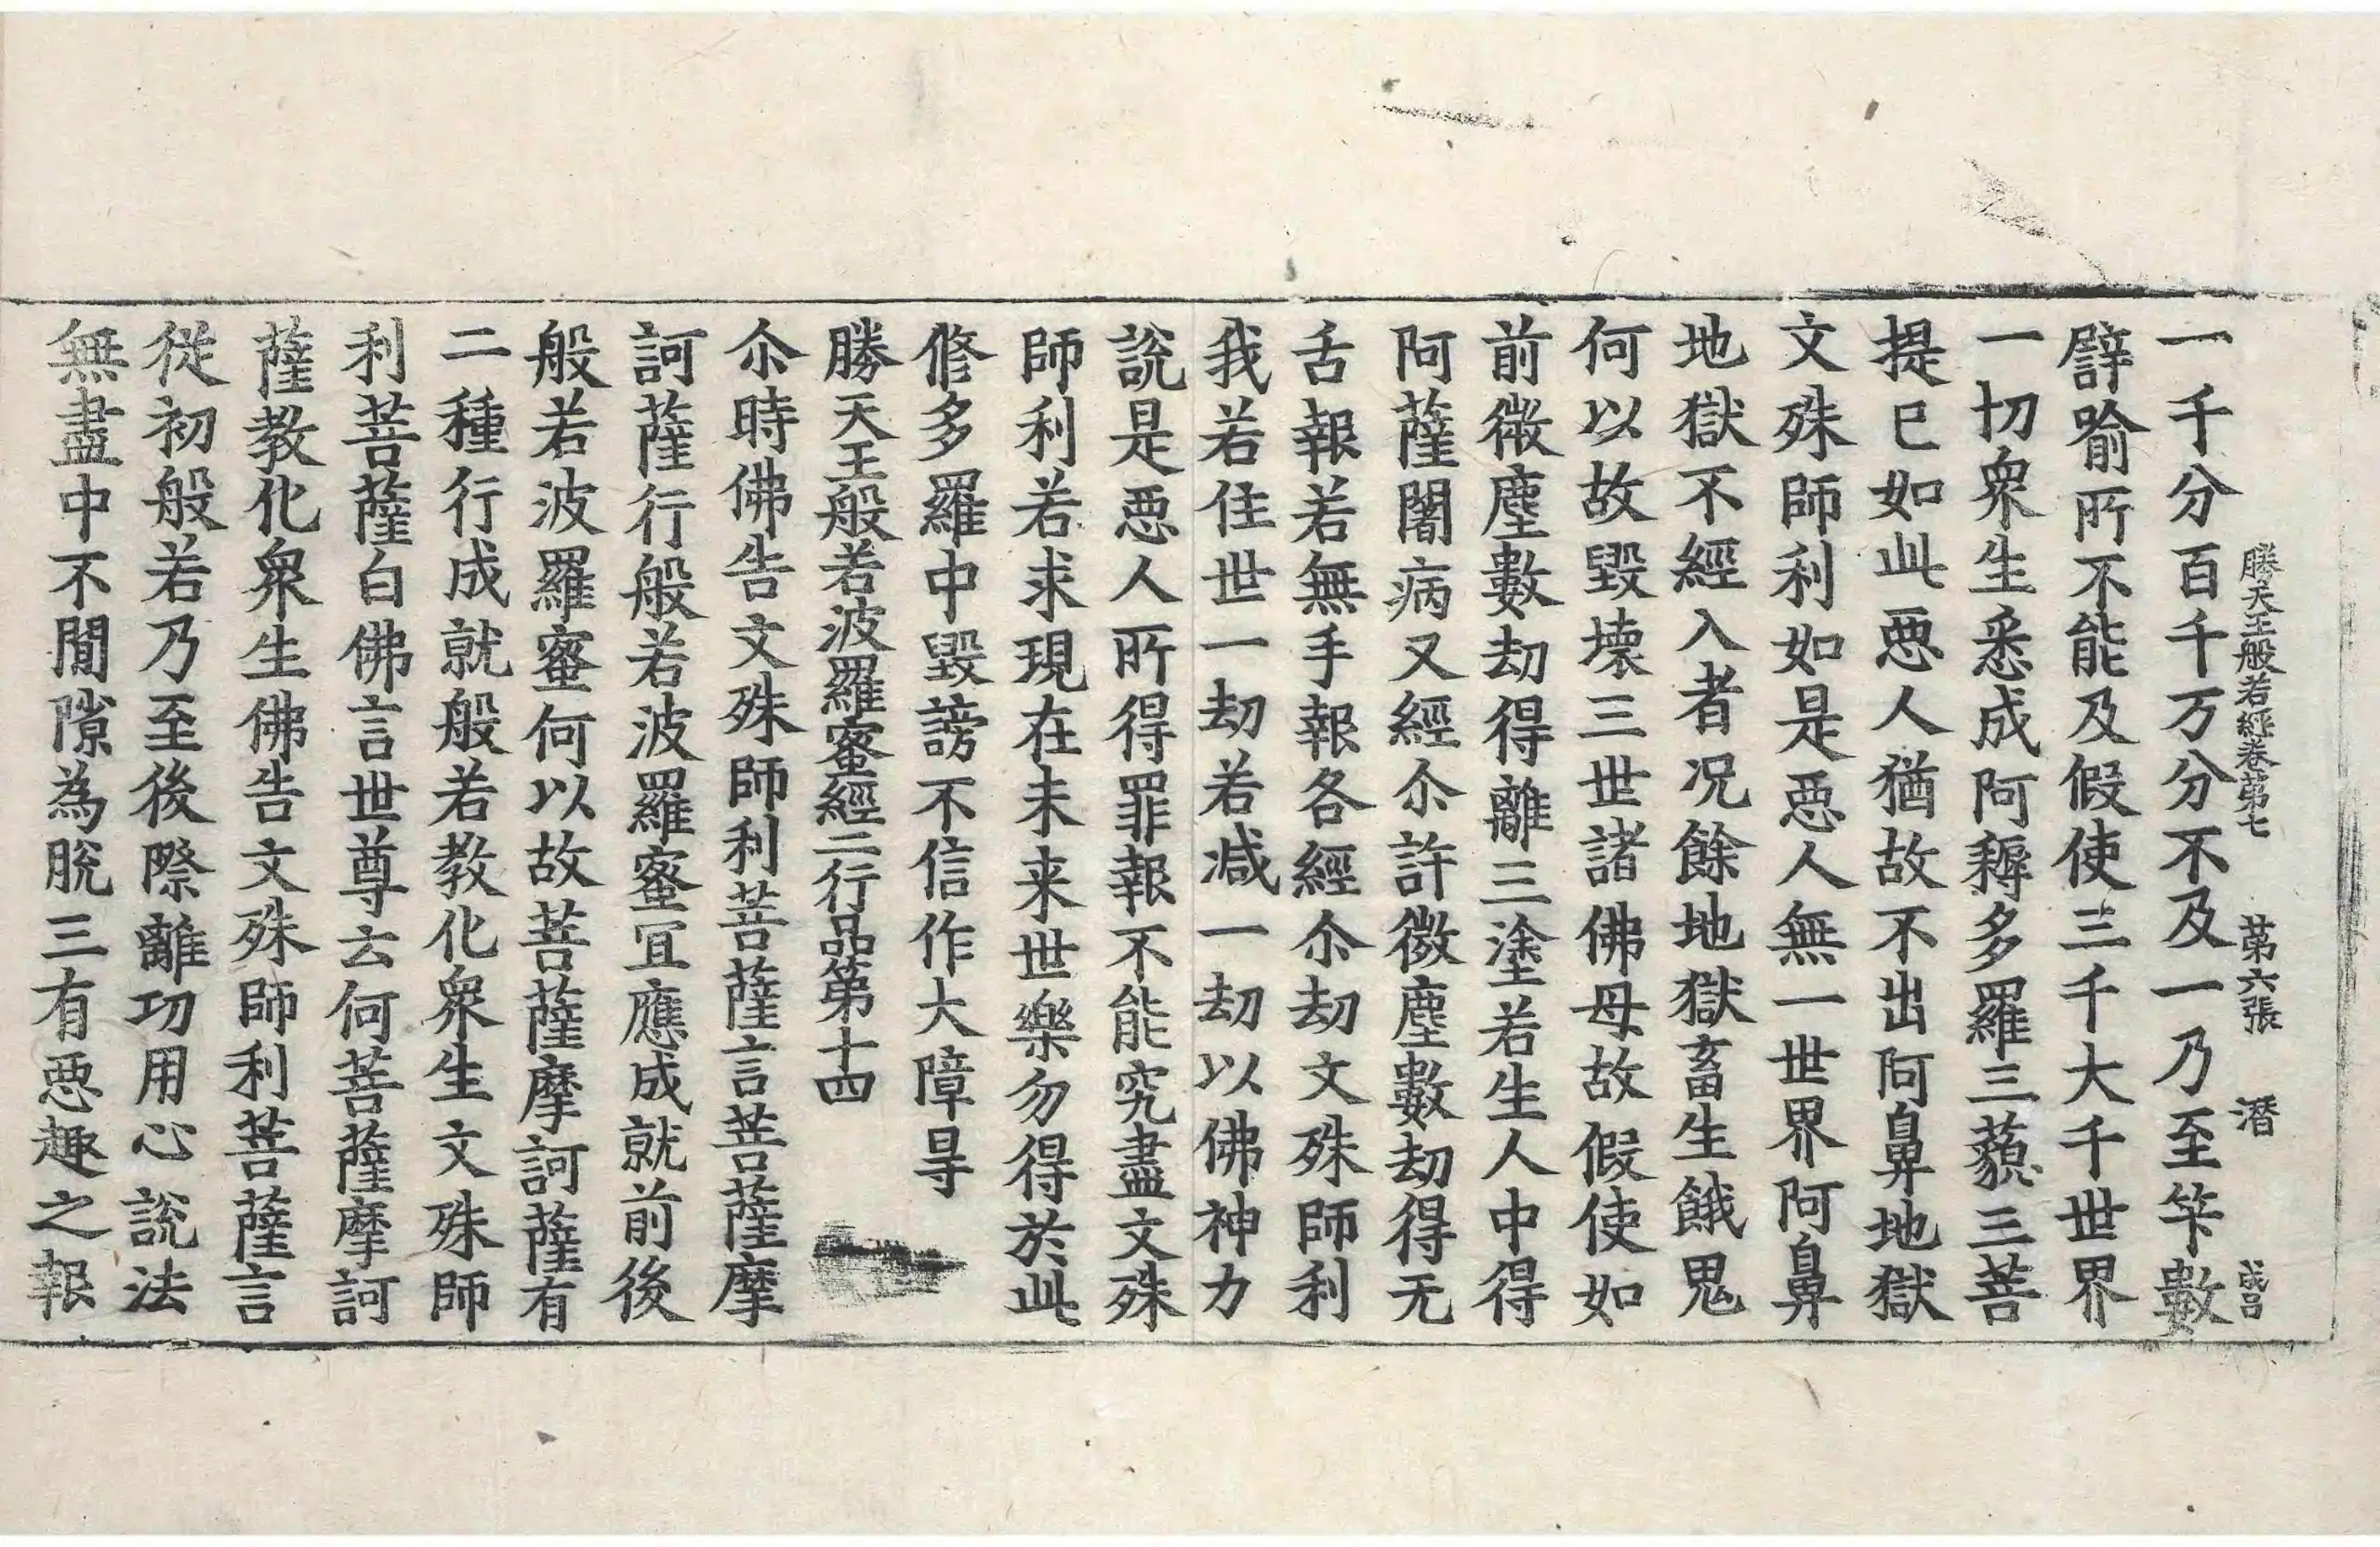 勝天王般若經卷第七 第六張 潛 成吕
一千分百千万分不及一乃至筭數
譬喻所不能及假使三千大千世界
一切衆生悉成阿耨多羅三藐三菩
提已如此惡人猶故不出阿鼻地獄
文殊師利如是惡人無一世界阿鼻
地獄不經入者况餘地獄畜生餓鬼
何以故毀壞三世諸佛母故假使如
前微塵數劫得離三塗若生人中得
阿薩闍病又經尒許微塵數劫得无
舌報若無手報各經尒劫文殊師利
我若住世一劫若减一劫以佛神力
說是惡人所得罪報不能究盡文殊
師利若求現在未来世樂勿得於此
修多羅中毀謗不信作大障㝵
勝天王般若波羅蜜經二行品第十四
尒時佛告文殊師利菩薩言菩薩摩
訶薩行般若波羅蜜冝應成就前後
般若波羅蜜何以故菩薩摩訶薩有
二種行成就般若教化衆生文殊師
利菩薩白佛言世尊云何菩薩摩訶
薩教化衆生佛告文殊師利菩薩言
從初般若乃至後際離功用心說法
無盡中不閒隙為脫三有惡趣之報